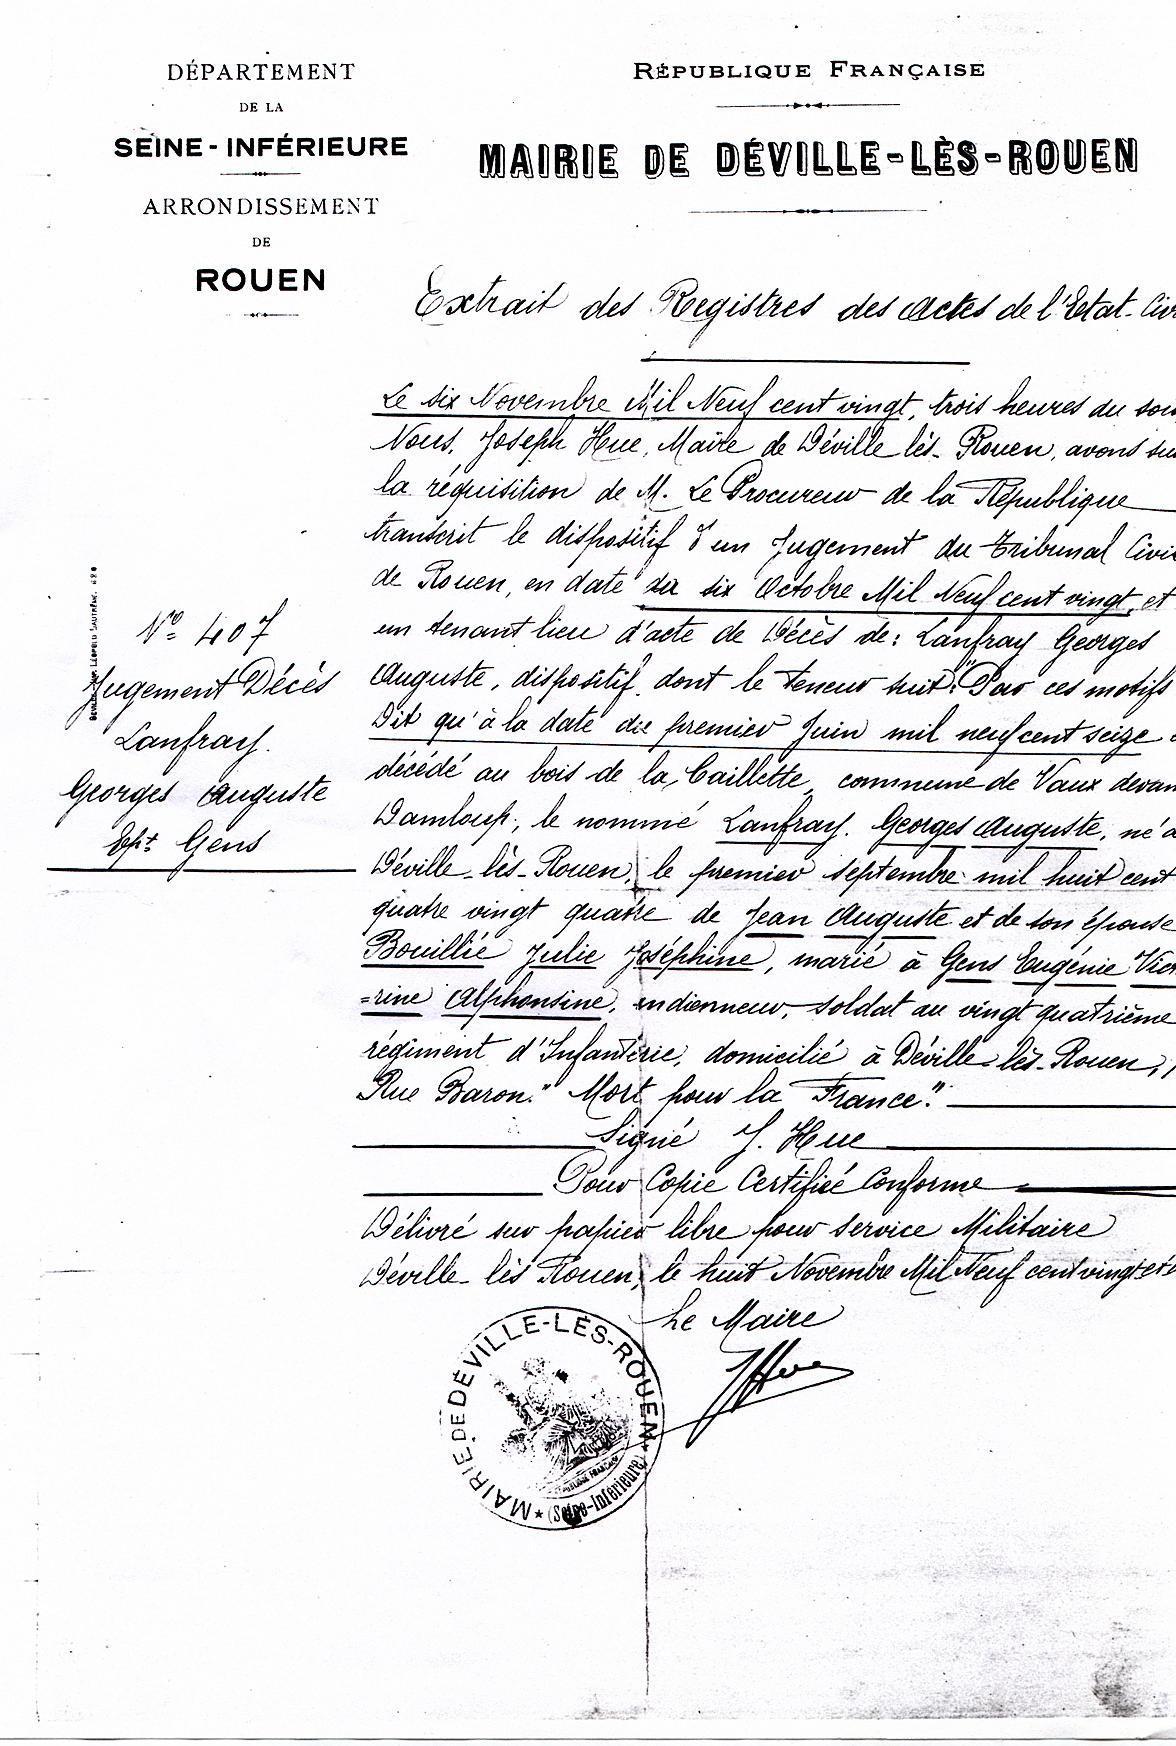 DÉPARTEMENT
DE LA
SEINE-INFÉRIEURE
ARRONDISSEMENT
DE
ROUEN
RÉPUBLIQUE FRANÇAISE
MAIRIE DE DÉVILLE-LÈS-ROUEN
Extrait des Registres des Actes de l'Etat-Civ
N° 407
Jugement Décès
Lanfray.
Georges Auguste
Ept Gens
Le six Novembre Mil Neuf cent vingt, trois heures du soi
Nous, Joseph Hue, Maire de Déville lès-Rouen, avons su
la réquisition de M. Le Procureur de la République
transcrit le dispositif d'un Jugement du Tribunal Civi
de Rouen, en date du six Octobre Mil Neuf cent vingt, et
en tenant lieu d'acte de Décès de: Lanfray Georges
Auguste, dispositif dont le teneur suit: "Par ces motifs
Dit qu'à la date du premier Juin mil neuf cent seize
décédé au bois de la Caillette, commune de Vaux devan
Damloup, le nommé Lanfray. Georges Auguste, né à
Déville-lès-Rouen, le premier septembre mil huit cent
quatre vingt quatre de Jean Auguste et de son épouse
Bouillié Julie Joséphine, marié à Gens Eugénie Vic
=rine Alphonsine, indienneur, soldat au vingt quatrième
régiment d'Infanterie, domicilié à Déville-lès-Rouen,
Rue Baron." Mort pour la France".
Signé J. Hue
Pour Copie Certifiée Conforme
Délivré sur papier libre pour service Militaire
Déville-lès Rouen, le huit Novembre Mil Neuf cent vingt et
Le Maire
JHue
MAIRIE DE DÉVILLE-LÈS-ROUEN
(Seine-Inférieure)